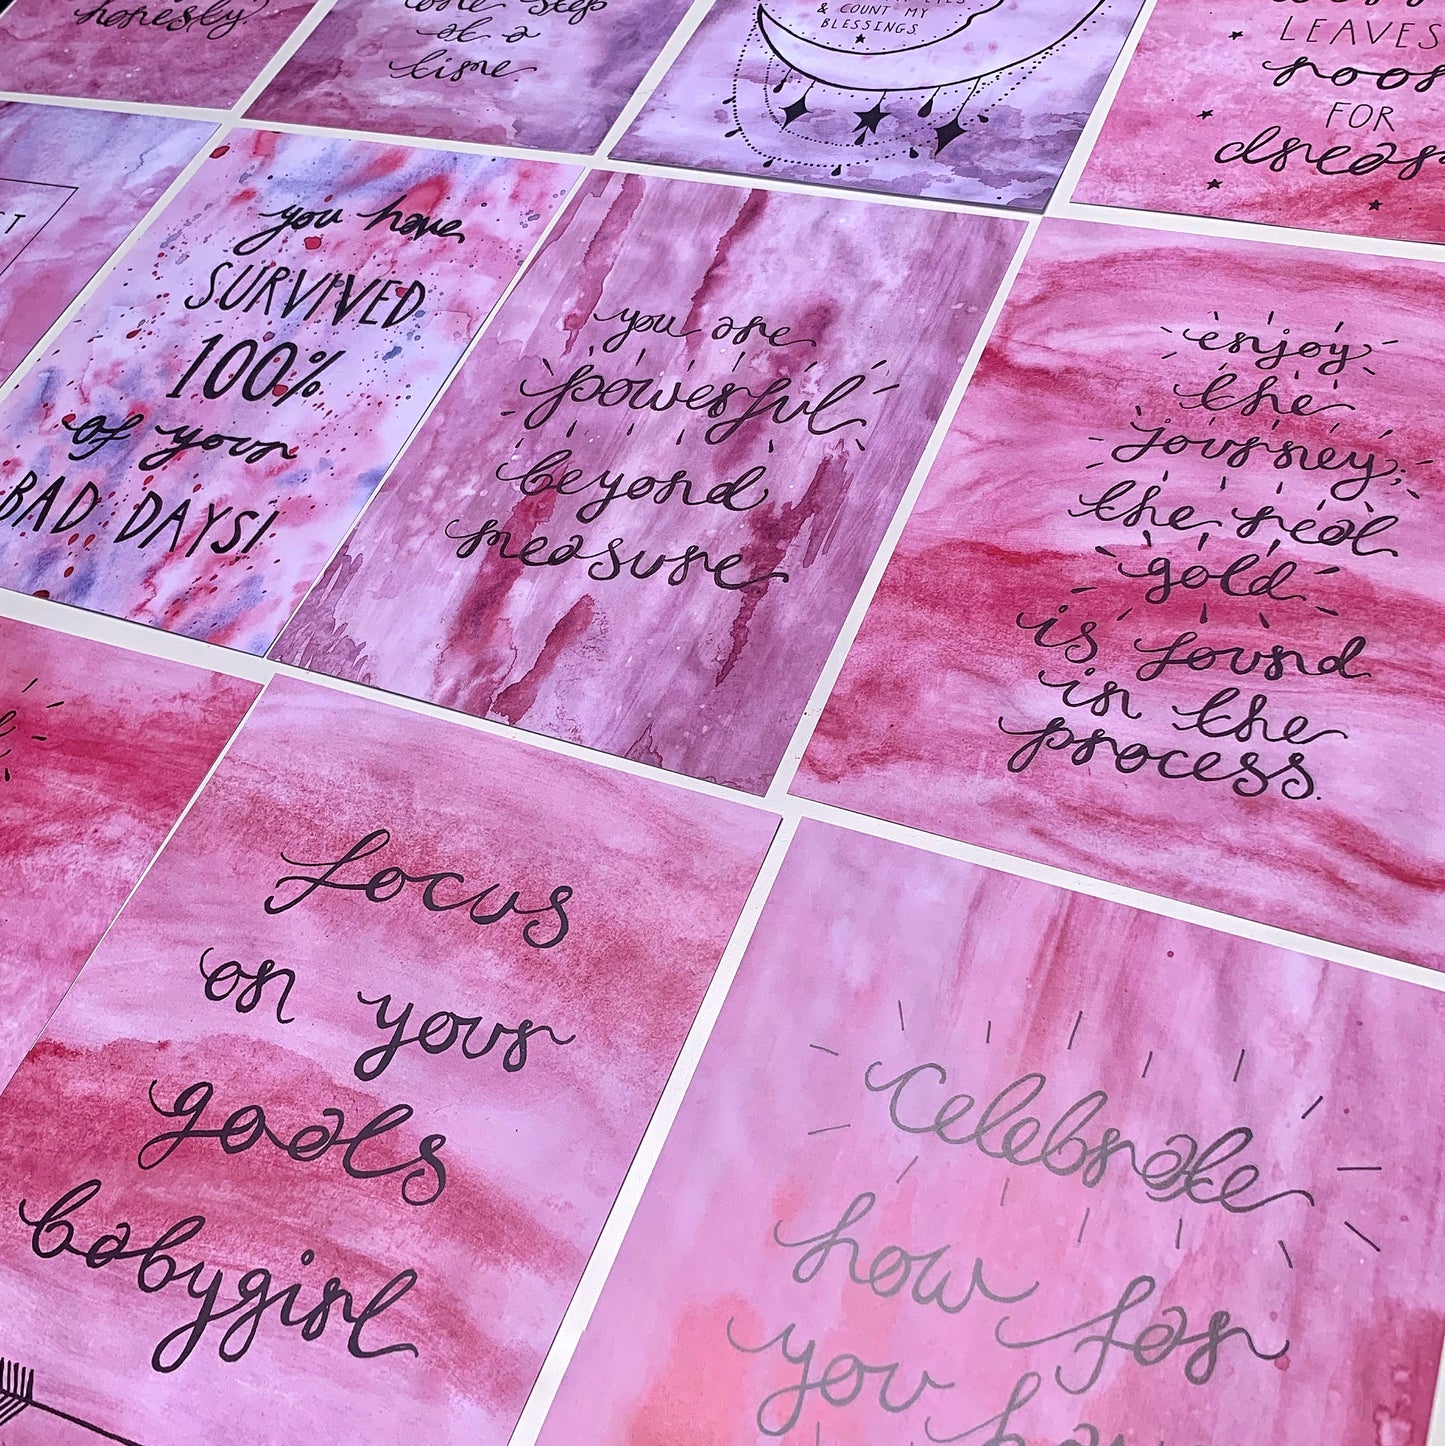 honestly?
one step
at a
time
& COUNT MY
BLESSINGS.
LEAVES
room
FOR
you have
SURVIVED
100%
of your
BAD DAYS!
you are
powerful
beyond
measure
enjoy
the
journey;
the real
gold
is found
in the
process.
focus
on your
goals
babygirl
celebrate
how far
you